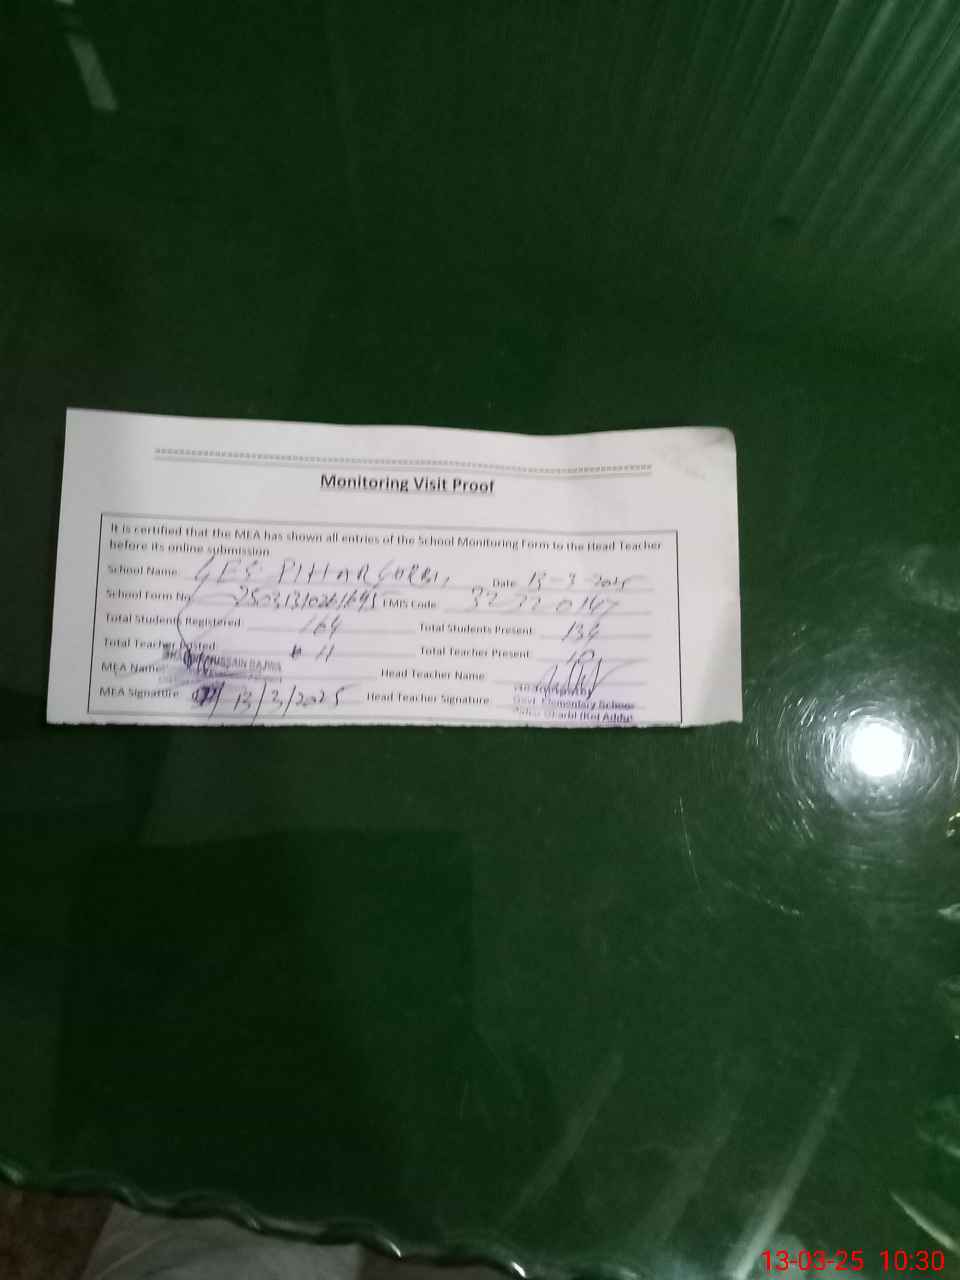 Monitoring Visit Proof
It is certified that the MEA has shown all entries of the School Monitoring Form to the Head Teacher
before its online submission
School Name GES PIHAR GHARBI Date 13-3-2025
School Form No EMIS Code 32220147
Total Students Registered 164 Total Students Present 134
Total Teacher Posted 11 Total Teacher Present 10
MEA Name HUSSAIN Head Teacher Name
MEA Signature 13/3/2025 Head Teacher Signature
Govt. Elementary School
Gharbi (Kot Addu)
13-03-25 10:30